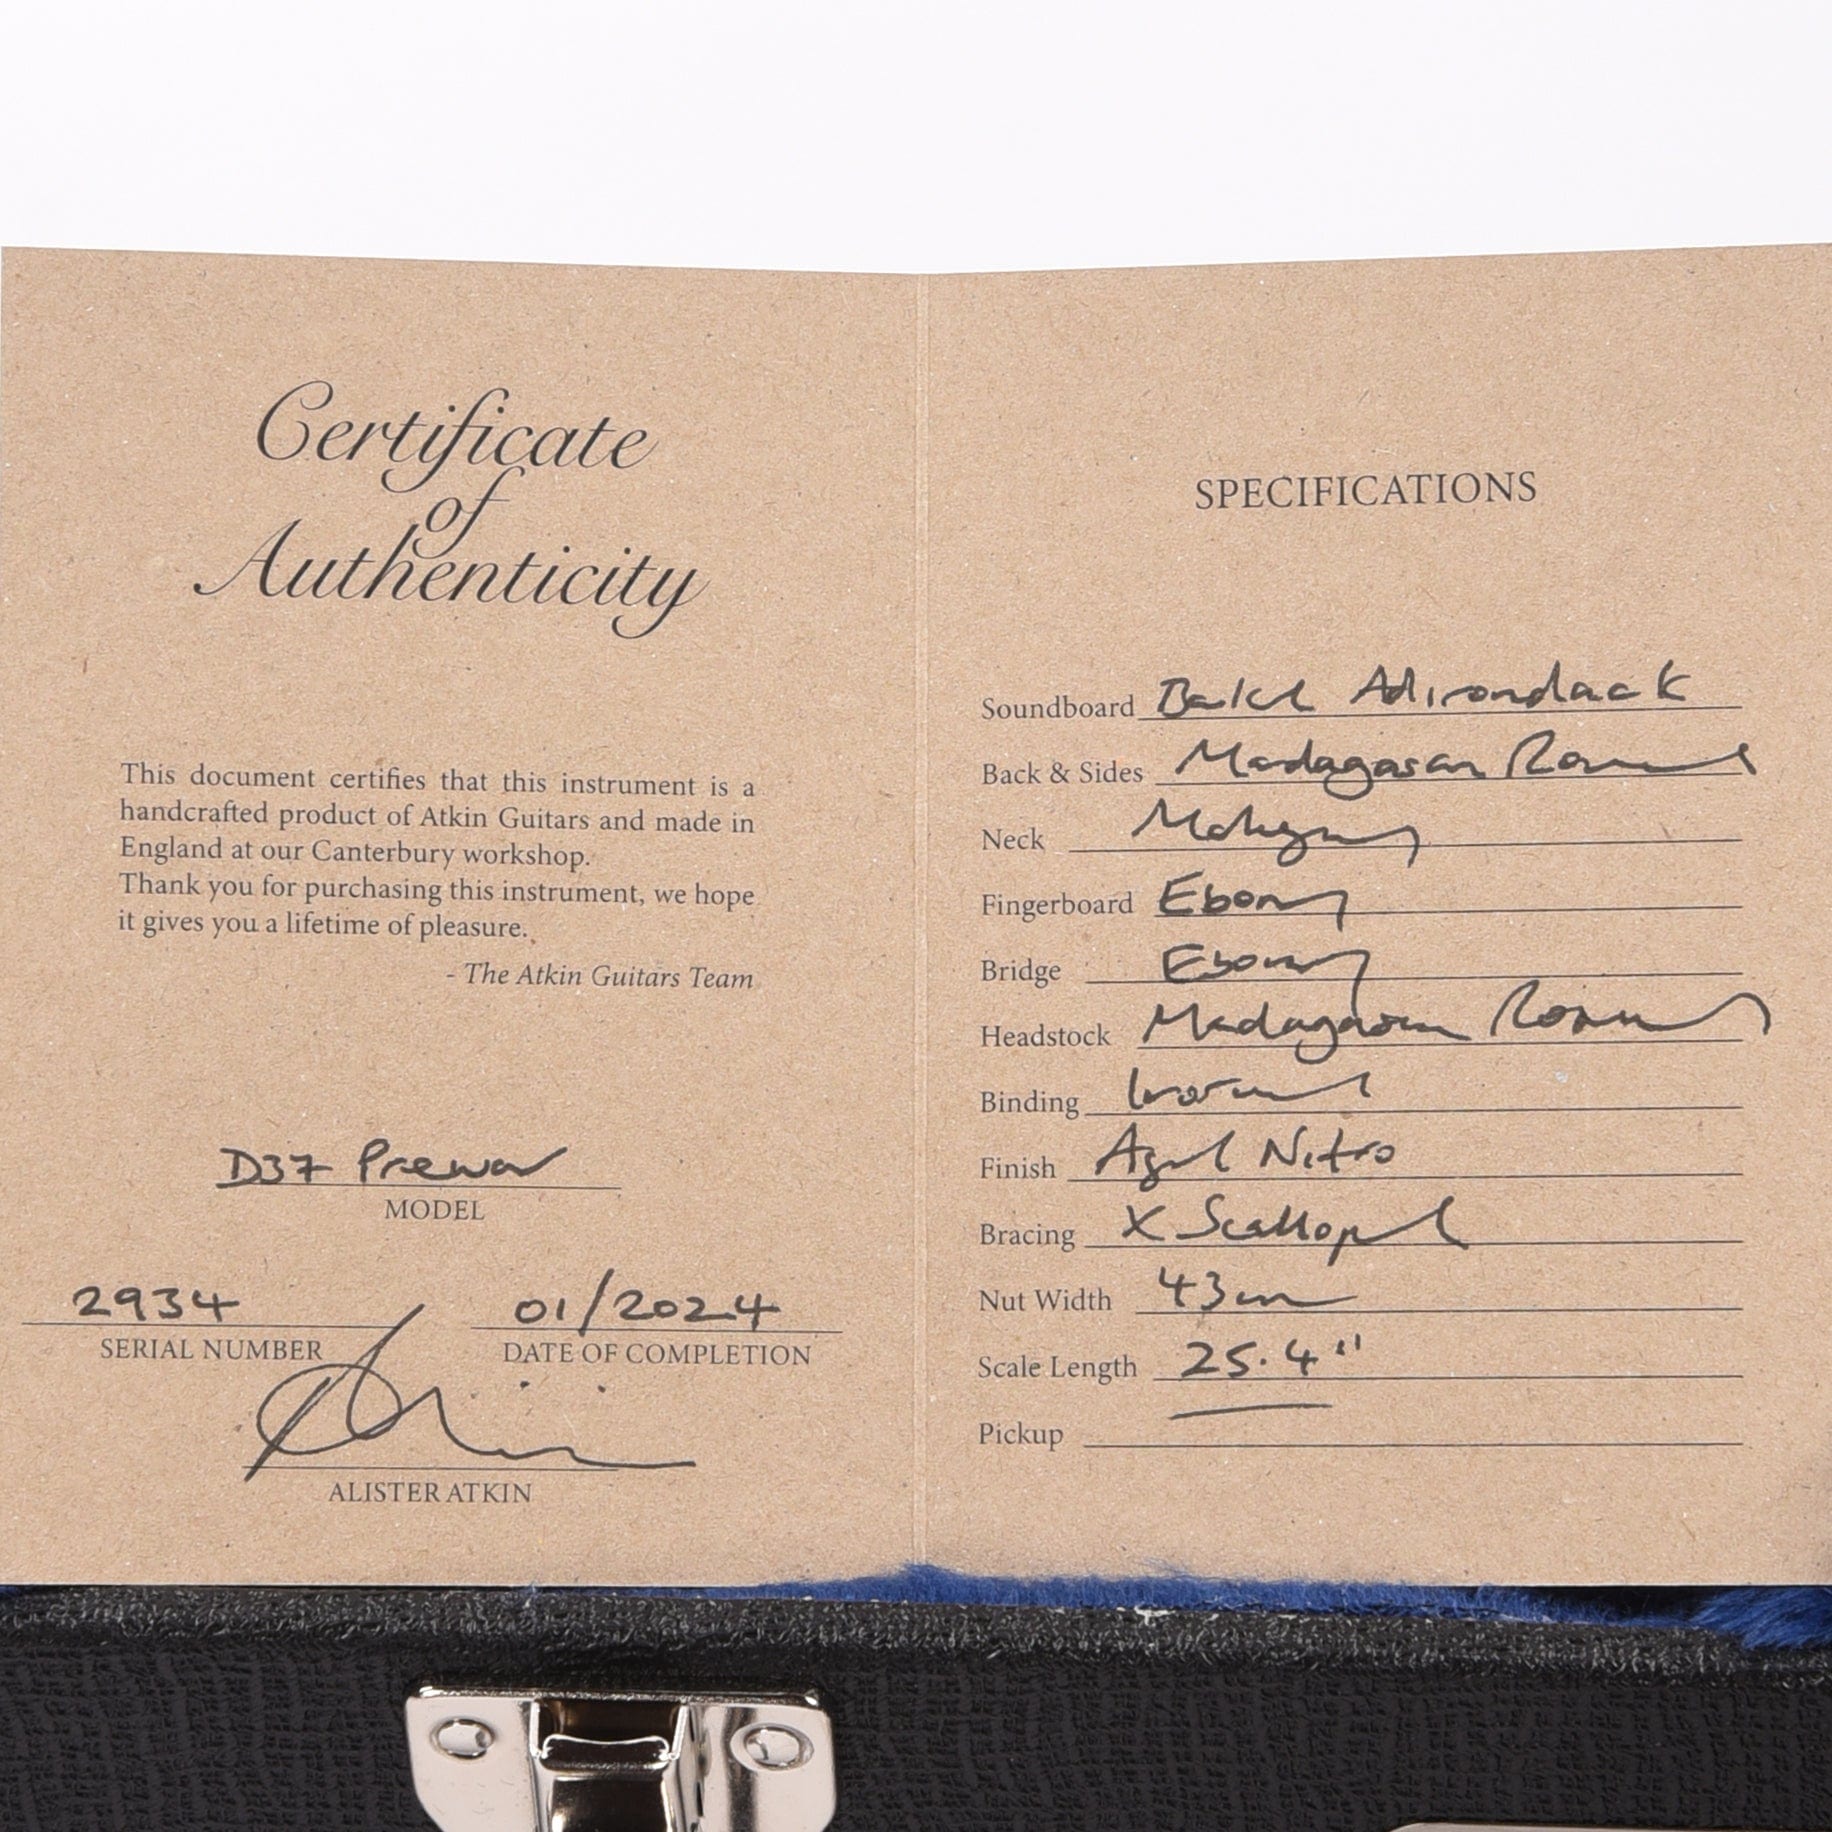 Certificate
of
Authenticity
This document certifies that this instrument is a
handcrafted product of Atkin Guitars and made in
England at our Canterbury workshop.
Thank you for purchasing this instrument, we hope
it gives you a lifetime of pleasure.
- The Atkin Guitars Team
D37 Prewar
MODEL
2934
SERIAL NUMBER
01/2024
DATE OF COMPLETION
ALISTER ATKIN
SPECIFICATIONS
Soundboard Baked Adirondack
Back & Sides Madagascan Rosewood
Neck Mahogany
Fingerboard Ebony
Bridge Ebony
Headstock Madagascan Rosewood
Binding
Finish Aged Nitro
Bracing X Scalloped
Nut Width 43mm
Scale Length 25.4"
Pickup —